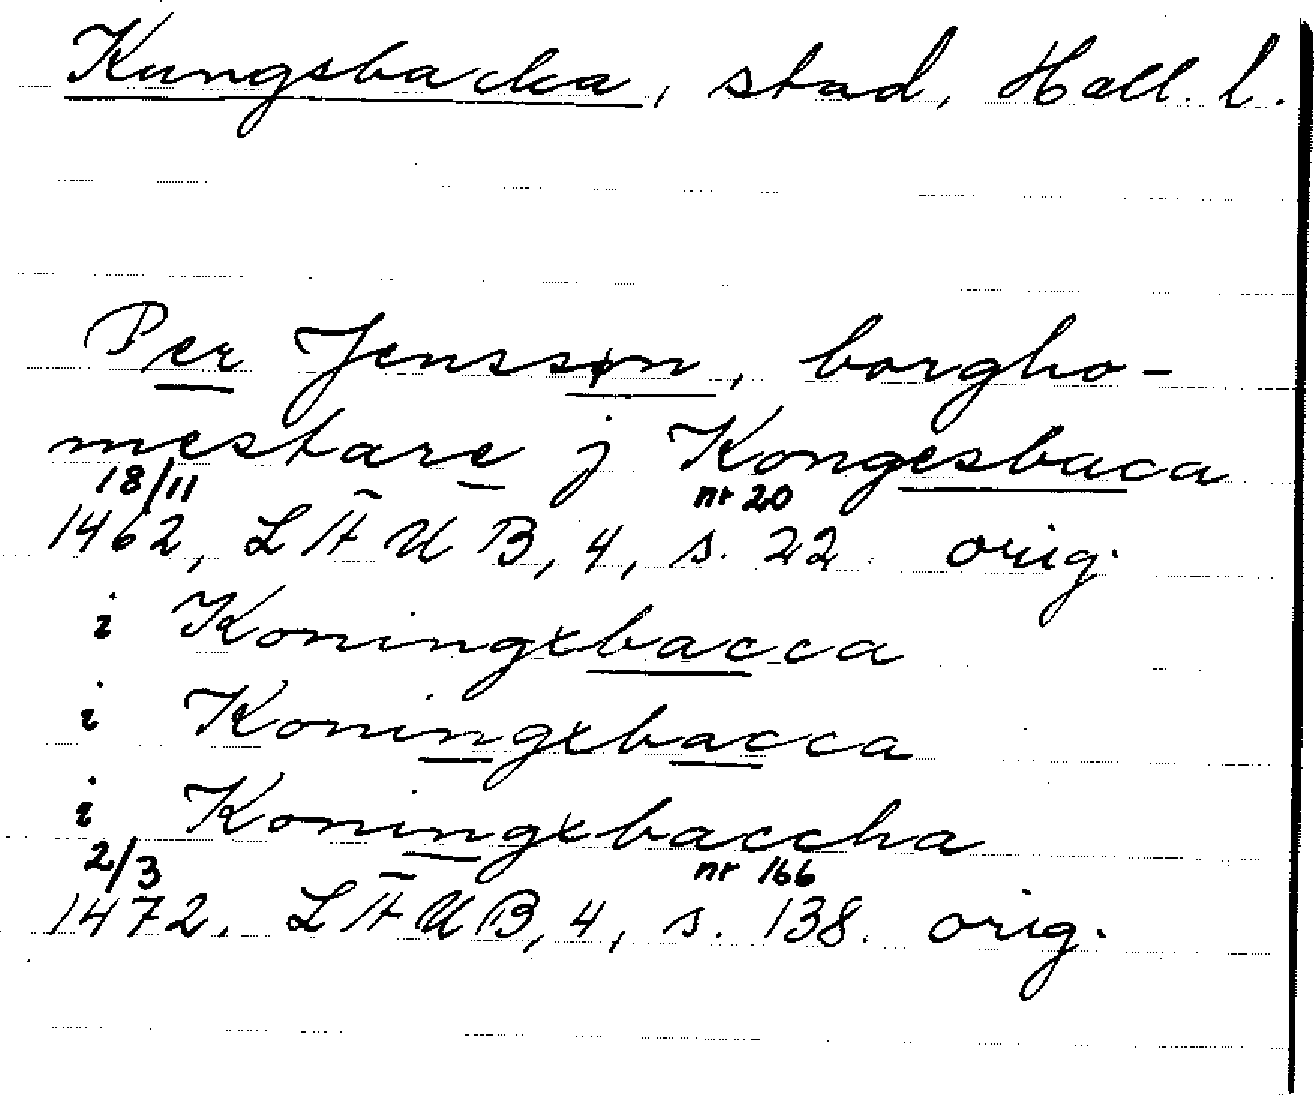 Kungsbacka, stad, Hall. l.
Per Jenssøn, borgho-
mestare j Kongesbaca
18/11 nr 20
1462, LÄUB, 4, s. 22 orig.
i Koningxbacca
i Koningxbacca
i Koningxbaccha
2/3 nr 166
1472. LÄUB, 4, s. 138. orig.